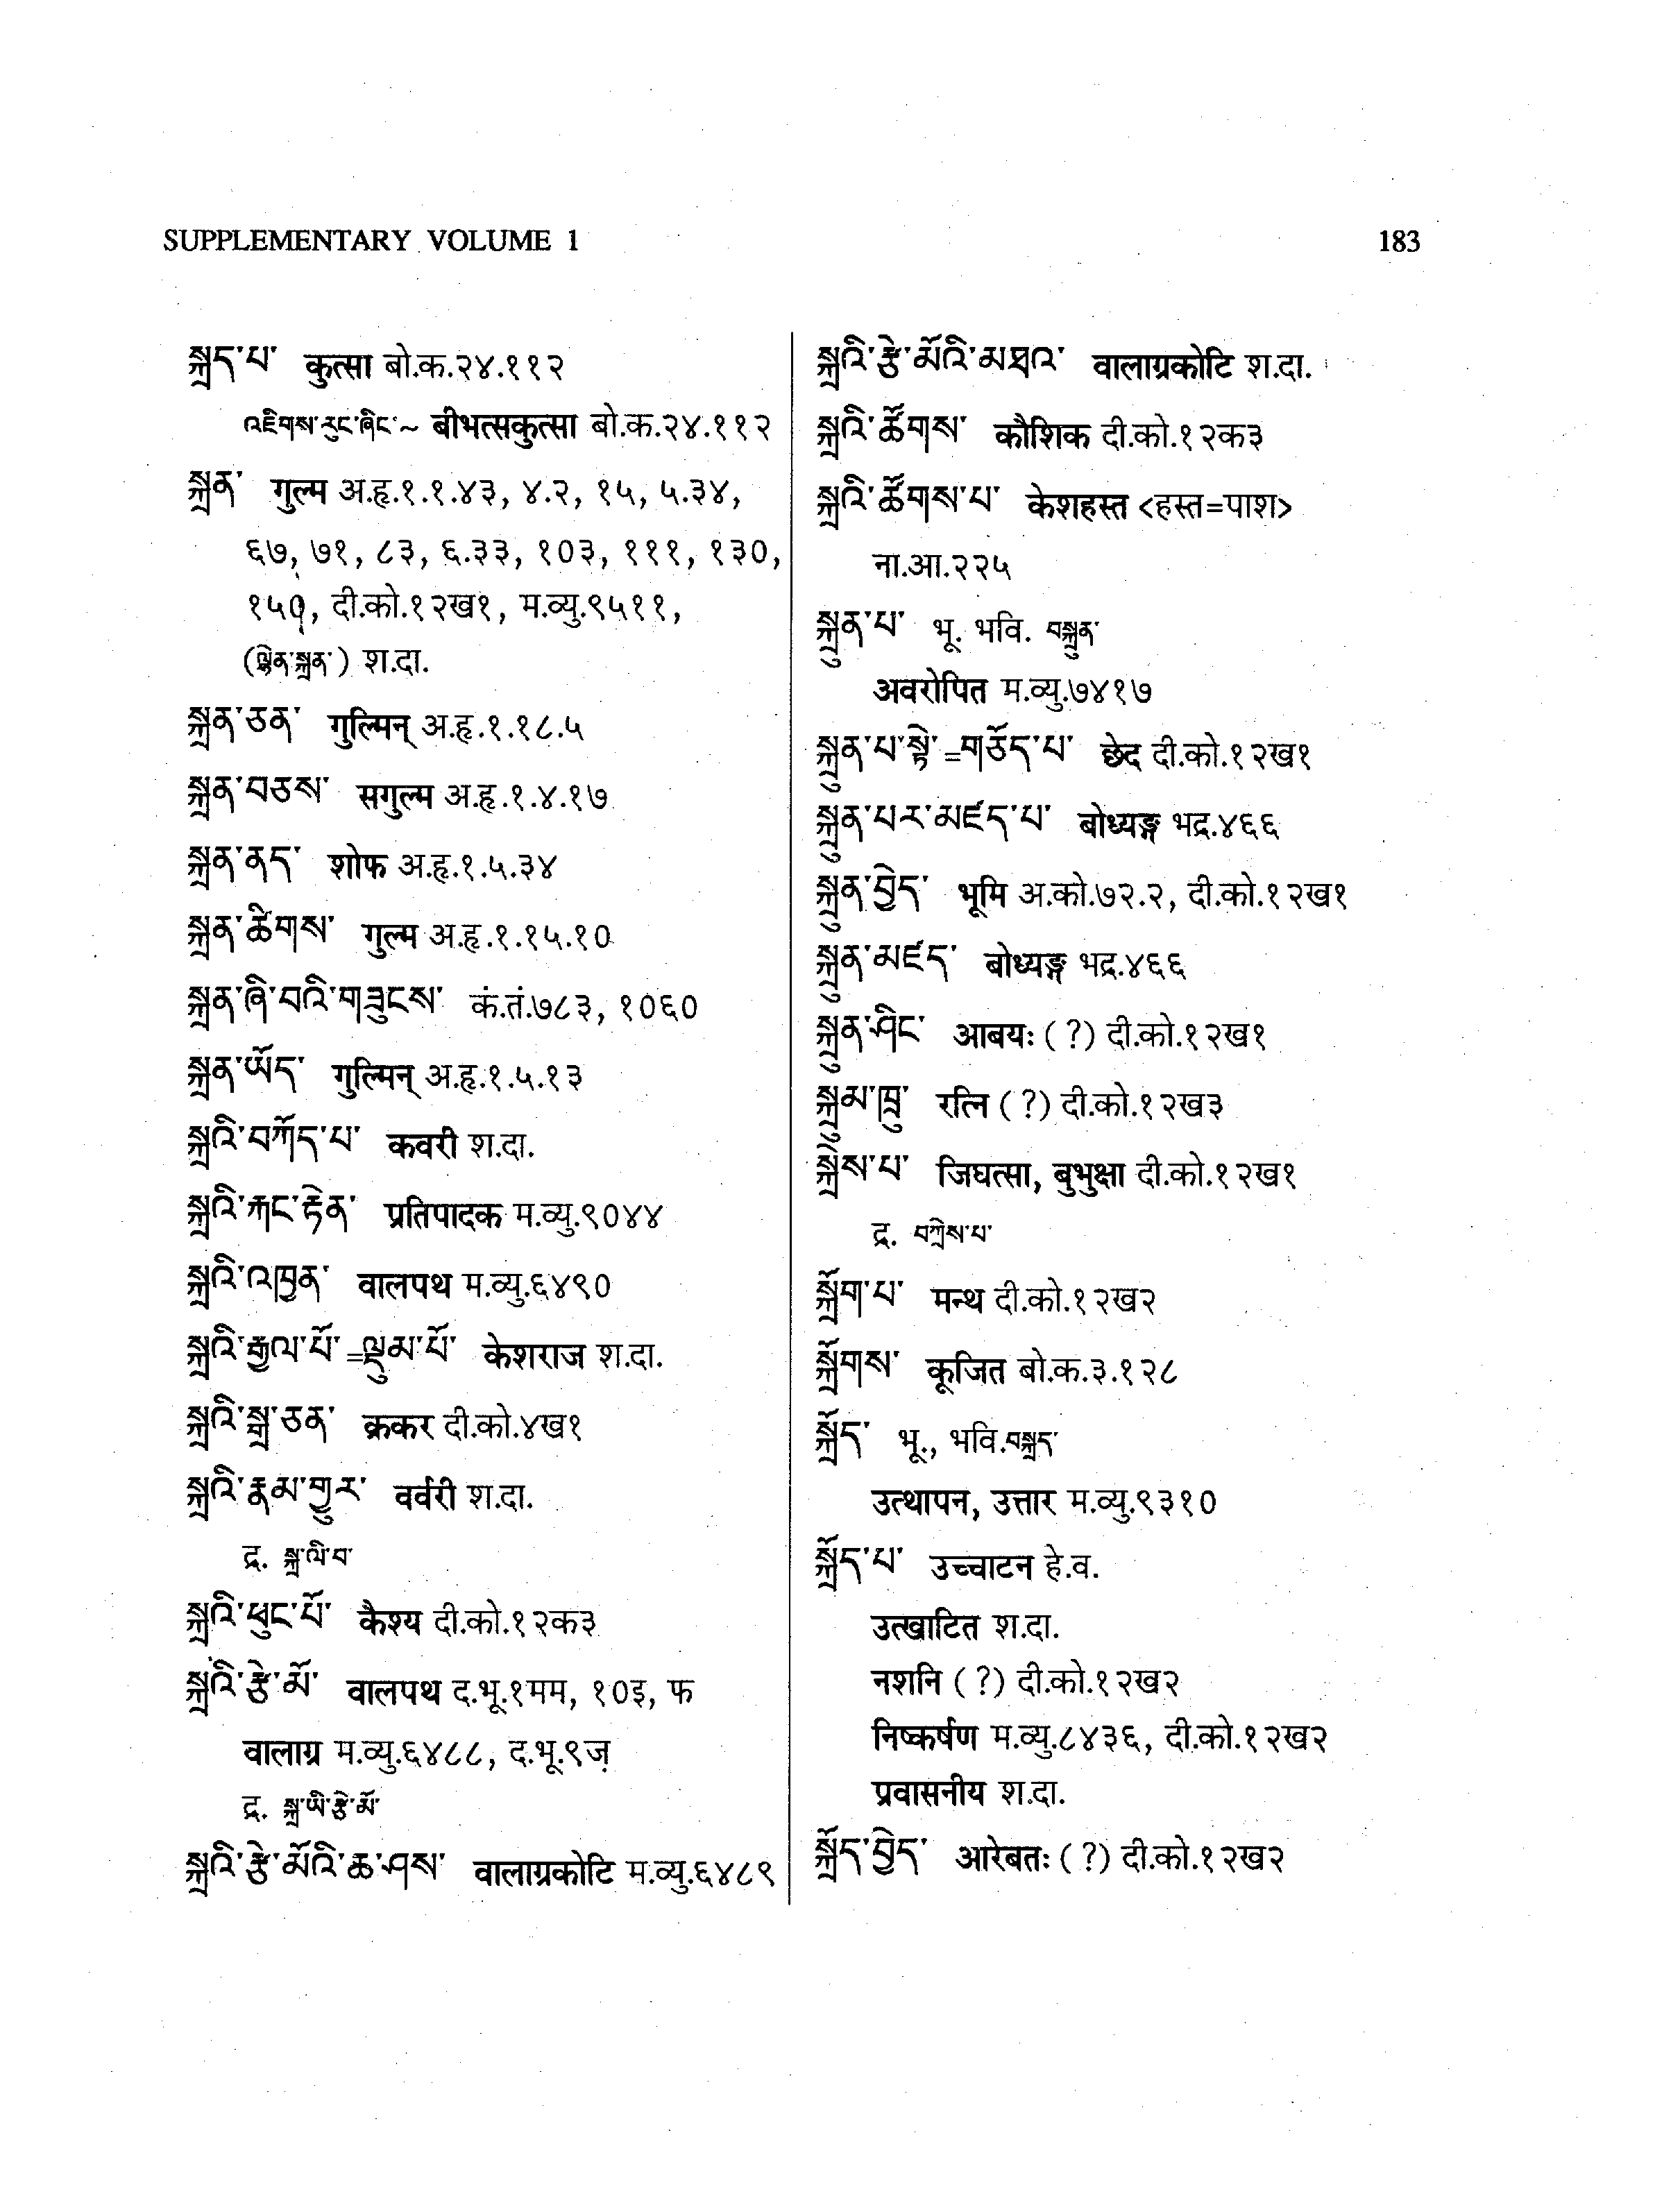 SUPPLEMENTARY VOLUME 1
183
སྐྲད་པ་ कुत्सा बो.क.२४.११२
འཇིགས་རུང་ཞིང་~ बीभत्सकुत्सा बो.क.२४.११२
སྐྲན་ गुल्म अ.हृ.१.१.४३, ४.२, १५, ५.३४,
६७, ७१, ८३, ६.३३, १०३, १११, १३०,
दी.को.१२ख१, म.व्यु.९५११,
श.दा.
སྐྲན་ཅན་ गुल्मिन् अ.हृ.१.१८.५
སྐྲན་བཅས་ सगुल्म अ.हृ.१.४.१७
སྐྲན་ནད་ शोफ अ.हृ.१.५.३४
སྐྲན་ཚིགས་ गुल्म अ.हृ.१.१५.१०
སྐྲན་ཞི་བའི་གཟུངས་ कं.तं.७८३, १०६०
སྐྲན་ཡོད་ गुल्मिन् अ.हृ.१.५.१३
སྐྲའི་བཀོད་པ་ कवरी श.दा.
སྐྲའི་རྐང་རྟེན་ प्रतिपादक म.व्यु.९०४४
སྐྲའི་འཁྱུན་ वालपथ म.व्यु.६४९०
སྐྲའི་རྒྱལ་པོ་=ལྡུམ་པོ་ केशराज श.दा.
སྐྲའི་སྒྲ་ཅན་ क्रकर दी.को.४ख१
སྐྲའི་རྣམ་གྱུར་ वर्वरी श.दा.
द्र. སྐྲ་ལི་བ་
སྐྲའི་ཕུང་པོ་ कैश्य दी.को.१२क३
སྐྲའི་རྩེ་མོ་ वालपथ द.भू.१मम, १०इ, फ
वालाग्र म.व्यु.६४८८, द.भू.९ज़
द्र. སྐྲ་ཡི་རྩེ་མོ་
སྐྲའི་རྩེ་མོའི་ཆ་ཤས་ वालाग्रकोटि म.व्यु.६४८९
སྐྲའི་རྩེ་མོའི་མཐའ་ वालाग्रकोटि श.दा.
སྐྲའི་ཚོགས་ कौशिक दी.को.१२क३
སྐྲའི་ཚོགས་པ་ केशहस्त <हस्त=पाश>
ना.आ.२२५
སྐྲུན་པ་ भू. भवि. བསྐྲུན་
अवरोपित म.व्यु.७४१७
སྐྲུན་པ་སྟེ་=གཅོད་པ་ छेद दी.को.१२ख१
སྐྲུན་པར་མཛད་པ་ बोध्यङ्ग भद्र.४६६
སྐྲུན་བྱེད་ भूमि अ.को.७२.२, दी.को.१२ख१
སྐྲུན་མཛད་ बोध्यङ्ग भद्र.४६६
སྐྲུན་ཤིང་ आबयः (?) दी.को.१२ख१
སྐྲུམ་ཁྲུ་ रत्नि (?) दी.को.१२ख३
སྐྲེས་པ་ जिघत्सा, बुभुक्षा दी.को.१२ख१
द्र. བཀྲེས་པ་
སྐྲོག་པ་ मन्थ दी.को.१२ख२
སྐྲོགས་ कूजित बो.क.३.१२८
སྐྲོད་ भू., भवि.བསྐྲད་
उत्थापन, उत्तार म.व्यु.९३१०
སྐྲོད་པ་ उच्चाटन हे.व.
उत्खाटित श.दा.
नशनि (?) दी.को.१२ख२
निष्कर्षण म.व्यु.८४३६, दी.को.१२ख२
प्रवासनीय श.दा.
སྐྲོད་བྱེད་ आरेबतः (?) दी.को.१२ख२